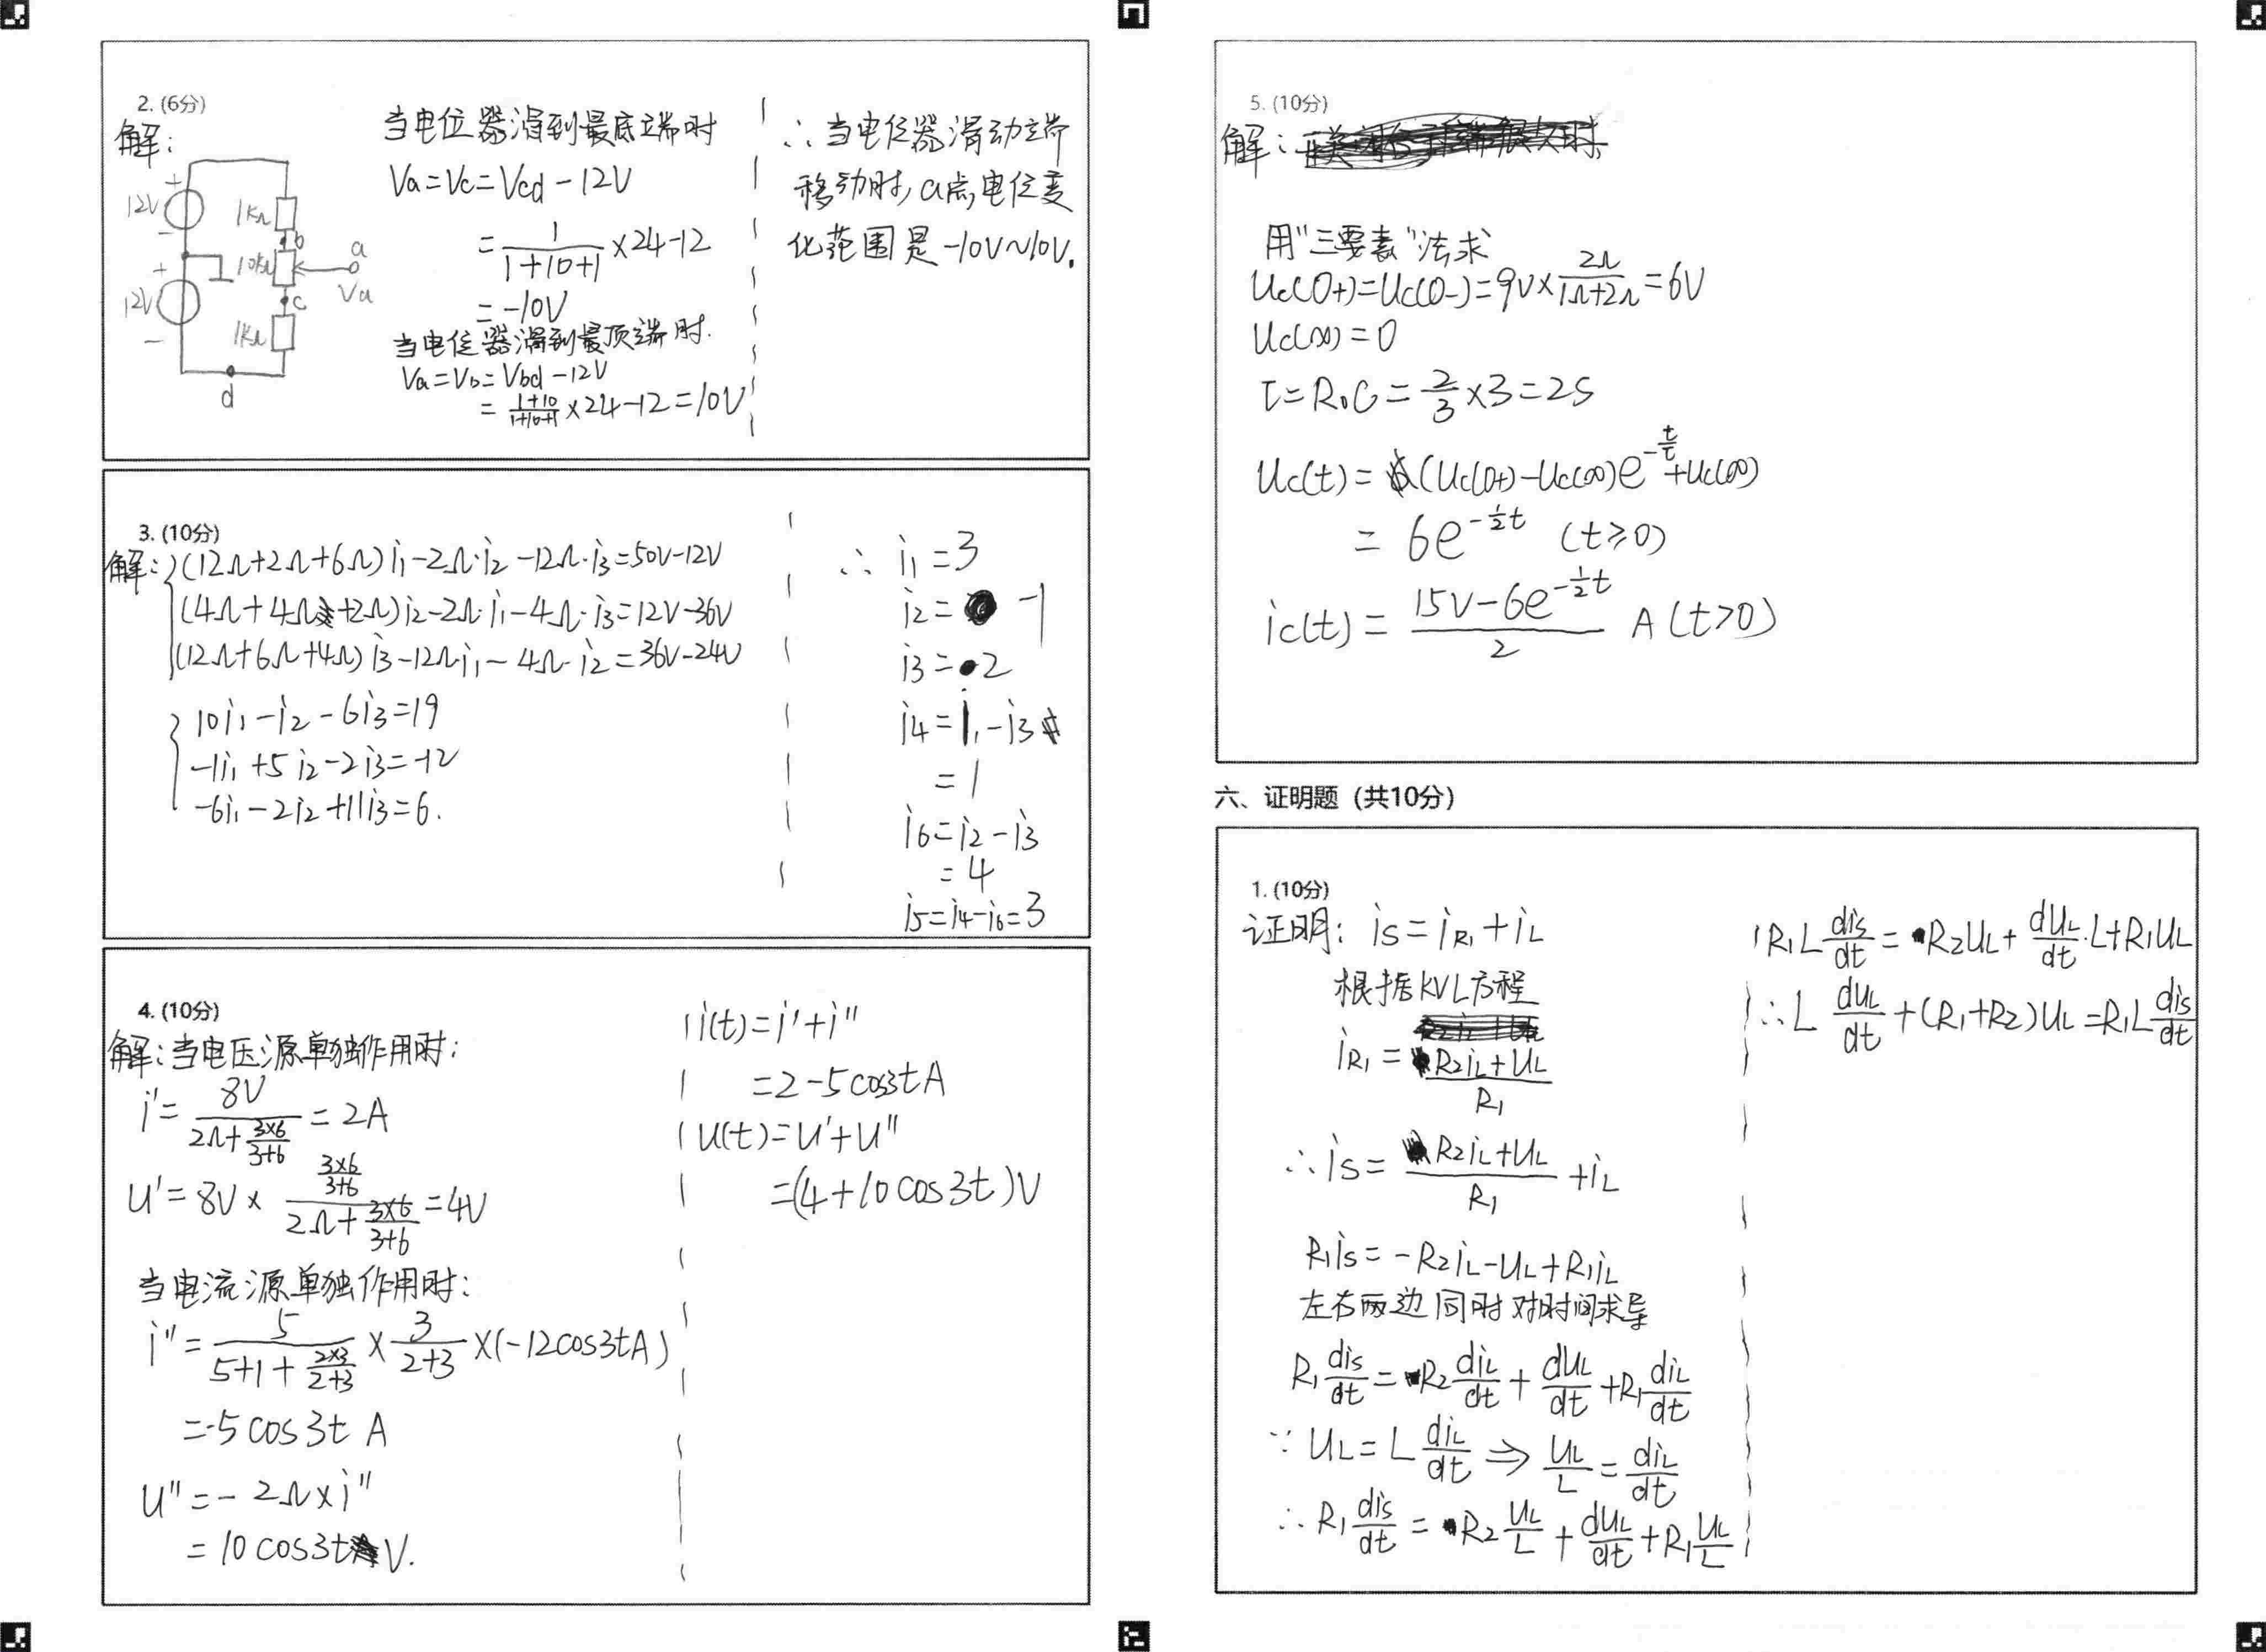 2. (6分)
解:
12V
+
-
+
12V
-
1KΩ
b
10KΩ
a
Va
c
1KΩ
d
当电位器滑到最底端时
Va=Vc=Vcd-12V
=1/(1+10+1)×24-12
=-10V
当电位器滑到最顶端时.
Va=Vb=Vbd-12V
=(1+10)/(1+10+1)×24-12=10V
∴当电位器滑动端
移动时,a点电位变
化范围是-10V~10V.
3. (10分)
解:{(12Ω+2Ω+6Ω)i₁-2Ω·i₂-12Ω·i₃=50V-12V
(4Ω+4Ω+2Ω)i₂-2Ω·i₁-4Ω·i₃=12V-36V
(12Ω+6Ω+4Ω)i₃-12Ω·i₁-4Ω·i₂=36V-24V
{10i₁-i₂-6i₃=19
-1i₁+5i₂-2i₃=-12
-6i₁-2i₂+11i₃=6.
∴ i₁=3
i₂=-1
i₃=2
i₄=i₁-i₃
=1
i₆=i₂-i₃
=4
i₅=i₄-i₆=3
4. (10分)
解:当电压源单独作用时:
i'=8V/(2Ω+(3×6)/(3+6))=2A
u'=8V×((3×6)/(3+6))/(2Ω+(3×6)/(3+6))=4V
当电流源单独作用时:
i''=5/(5+1+(2×3)/(2+3))×3/(2+3)×(-12cos3tA)
=-5cos3t A
u''=-2Ω×i''
=10cos3t V.
i(t)=i'+i''
=2-5cos3tA
u(t)=u'+u''
=(4+10cos3t)V
5. (10分)
解:
用"三要素"法求
Uc(0+)=Uc(0-)=9V×2Ω/(1Ω+2Ω)=6V
Uc(∞)=0
τ=R₀C=2/3×3=2S
Uc(t)=(Uc(0+)-Uc(∞))e^(-t/τ)+Uc(∞)
=6e^(-1/2t) (t≥0)
ic(t)=(15V-6e^(-1/2t))/2 A (t>0)
六、证明题（共10分）
1. (10分)
证明: is=iR₁+iL
根据KVL方程
iR₁=(R₂iL+UL)/R₁
∴is=(R₂iL+UL)/R₁+iL
R₁is=-R₂iL-UL+R₁iL
左右两边同时对时间求导
R₁dis/dt=R₂diL/dt+dUL/dt+R₁diL/dt
∵UL=LdiL/dt⇒UL/L=diL/dt
∴R₁dis/dt=R₂UL/L+dUL/dt+R₁UL/L
R₁Ldis/dt=R₂UL+dUL/dt·L+R₁UL
∴LdUL/dt+(R₁+R₂)UL=R₁Ldis/dt